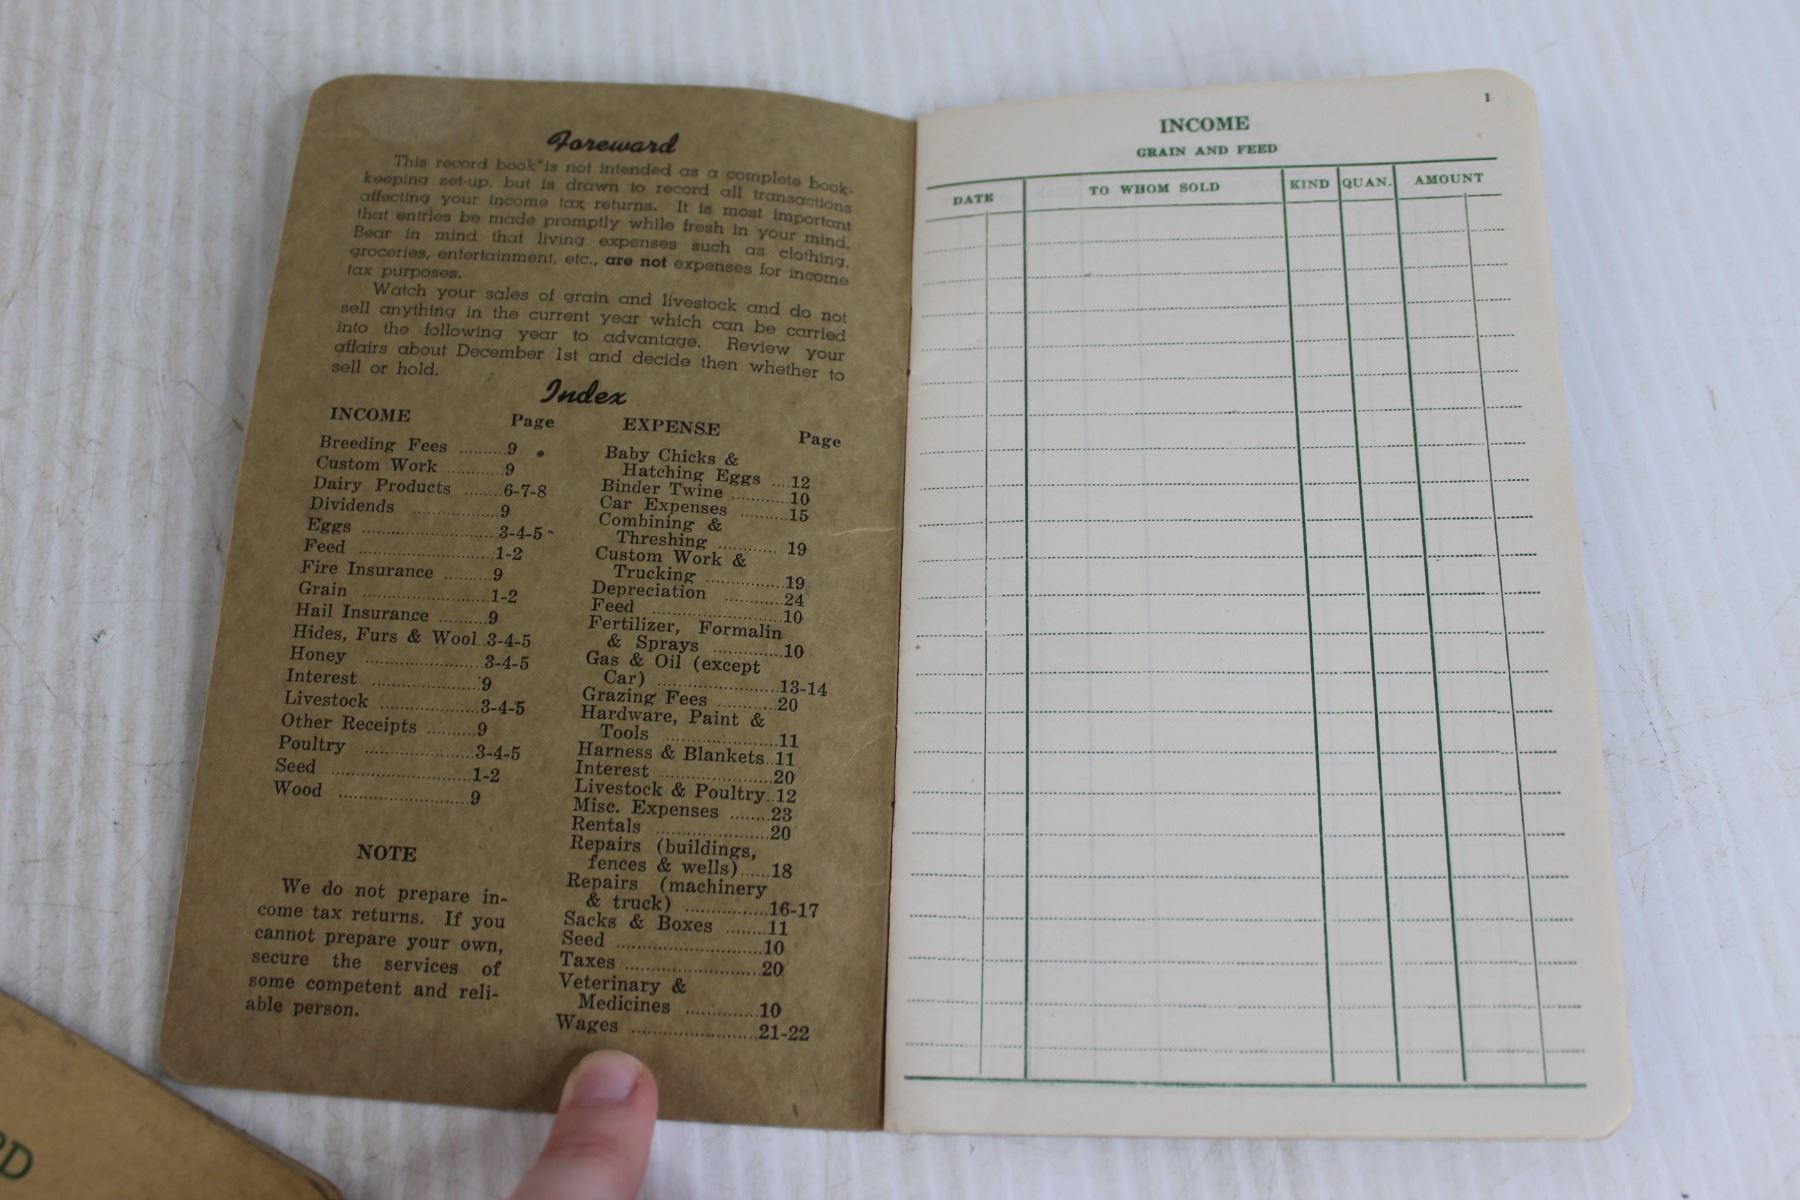 Foreward
This record book is not intended as a complete book-
keeping set-up, but is drawn to record all transactions
affecting your income tax returns. It is most important
that entries be made promptly while fresh in your mind.
Bear in mind that living expenses such as clothing,
groceries, entertainment, etc., are not expenses for income
tax purposes.
Watch your sales of grain and livestock and do not
sell anything in the current year which can be carried
into the following year to advantage. Review your
affairs about December 1st and decide then whether to
sell or hold.
Index
INCOME Page
Breeding Fees ........ 9
Custom Work .......... 9
Dairy Products ....... 6-7-8
Dividends ............ 9
Eggs ........................ 3-4-5
Feed ........................ 1-2
Fire Insurance ......... 9
Grain ....................... 1-2
Hail Insurance ......... 9
Hides, Furs & Wool 3-4-5
Honey ..................... 3-4-5
Interest ................... 9
Livestock ................. 3-4-5
Other Receipts ......... 9
Poultry .................... 3-4-5
Seed ........................ 1-2
Wood ....................... 9
NOTE
We do not prepare in-
come tax returns. If you
cannot prepare your own,
secure the services of
some competent and reli-
able person.
EXPENSE Page
Baby Chicks &
Hatching Eggs .... 12
Binder Twine ........... 10
Car Expenses ......... 15
Combining &
Threshing ........... 19
Custom Work &
Trucking ............... 19
Depreciation ........... 24
Feed ........................ 10
Fertilizer, Formalin
& Sprays .............. 10
Gas & Oil (except
Car) ...................... 13-14
Grazing Fees .......... 20
Hardware, Paint &
Tools .................... 11
Harness & Blankets.. 11
Interest .................... 20
Livestock & Poultry.. 12
Misc. Expenses ........ 23
Rentals .................... 20
Repairs (buildings,
fences & wells)...... 18
Repairs (machinery
& truck) ................ 16-17
Sacks & Boxes ........ 11
Seed ........................ 10
Taxes ....................... 20
Veterinary &
Medicines ............. 10
Wages ...................... 21-22
1
INCOME
GRAIN AND FEED
DATE TO WHOM SOLD KIND QUAN. AMOUNT